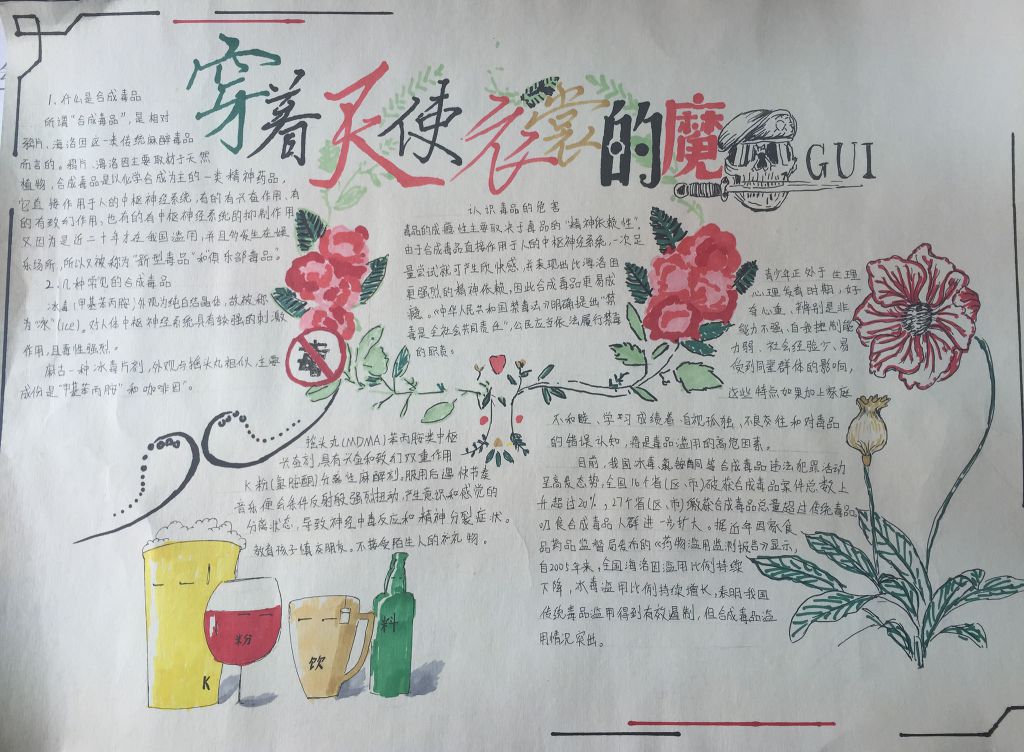 穿着天使衣裳的魔GUI
1、什么是合成毒品
所谓“合成毒品”，是相对
鸦片、海洛因这一类传统麻醉毒品
而言的。鸦片、海洛因主要取材于天然
植物，合成毒品是以化学合成为主的一类精神药品，
它直接作用于人的中枢神经系统，有的有兴奋作用、有
的有致幻作用，也有的有中枢神经系统的抑制作用
又因为是近二十年才在我国滥用，并且多发生在娱
乐场所，所以又被称为“新型毒品”和俱乐部毒品”。
2、几种常见的合成毒品
冰毒(甲基苯丙胺)：外观为纯白结晶体，故被称
为“冰”(Ice)。对人体中枢神经系统具有较强的刺激
作用，且毒性强烈。
麻古一种冰毒片剂，外观与摇头丸相似，主要
成份是“甲基苯丙胺”和“咖啡因”。
毒
认识毒品的危害
毒品的成瘾性主要取决于毒品的“精神依赖性”。
由于合成毒品直接作用于人的中枢神经系统，一次足
量尝试就可产生欣快感，并表现出比海洛因
更强烈的精神依赖，因此合成毒品更易成
瘾。《中华人民共和国禁毒法》明确提出“禁
毒是全社会共同责任”，公民应当依法履行禁毒
的职责。
摇头丸(MDMA)苯丙胺类中枢
兴奋剂，具有兴奋和致幻双重作用
K粉(氯胺酮)分离性麻醉剂，服用后遇快节奏
音乐便会条件反射般强烈扭动，产生意识和感觉的
分离状态，导致神经中毒反应和精神分裂症状。
教育孩子慎交朋友。不接受陌生人的礼物。
青少年正处于生理
心理发育时期，好
奇心重、辨别是非
能力不强、自我控制能
力弱、社会经验少、易
受到同辈群体的影响，
这些特点如果加上家庭
不和睦、学习成绩差、自视孤独，不良交往和对毒品
的错误认知，将是毒品滥用的高危因素。
目前，我国冰毒、氯胺酮等合成毒品违法犯罪活动
呈高发态势，全国16个省(区、市)破获合成毒品案件总数上
升超过20%，27个省(区、市)缴获合成毒品总量超过传统毒品
吸食合成毒品人群进一步扩大。据近年国家食
品药品监督局发布的《药物滥用监测报告》显示，
自2005年来，全国海洛因滥用比例持续
下降，冰毒滥用比例持续增长，表明我国
传统毒品滥用得到有效遏制，但合成毒品滥
用情况突出。
K
粉
饮
料